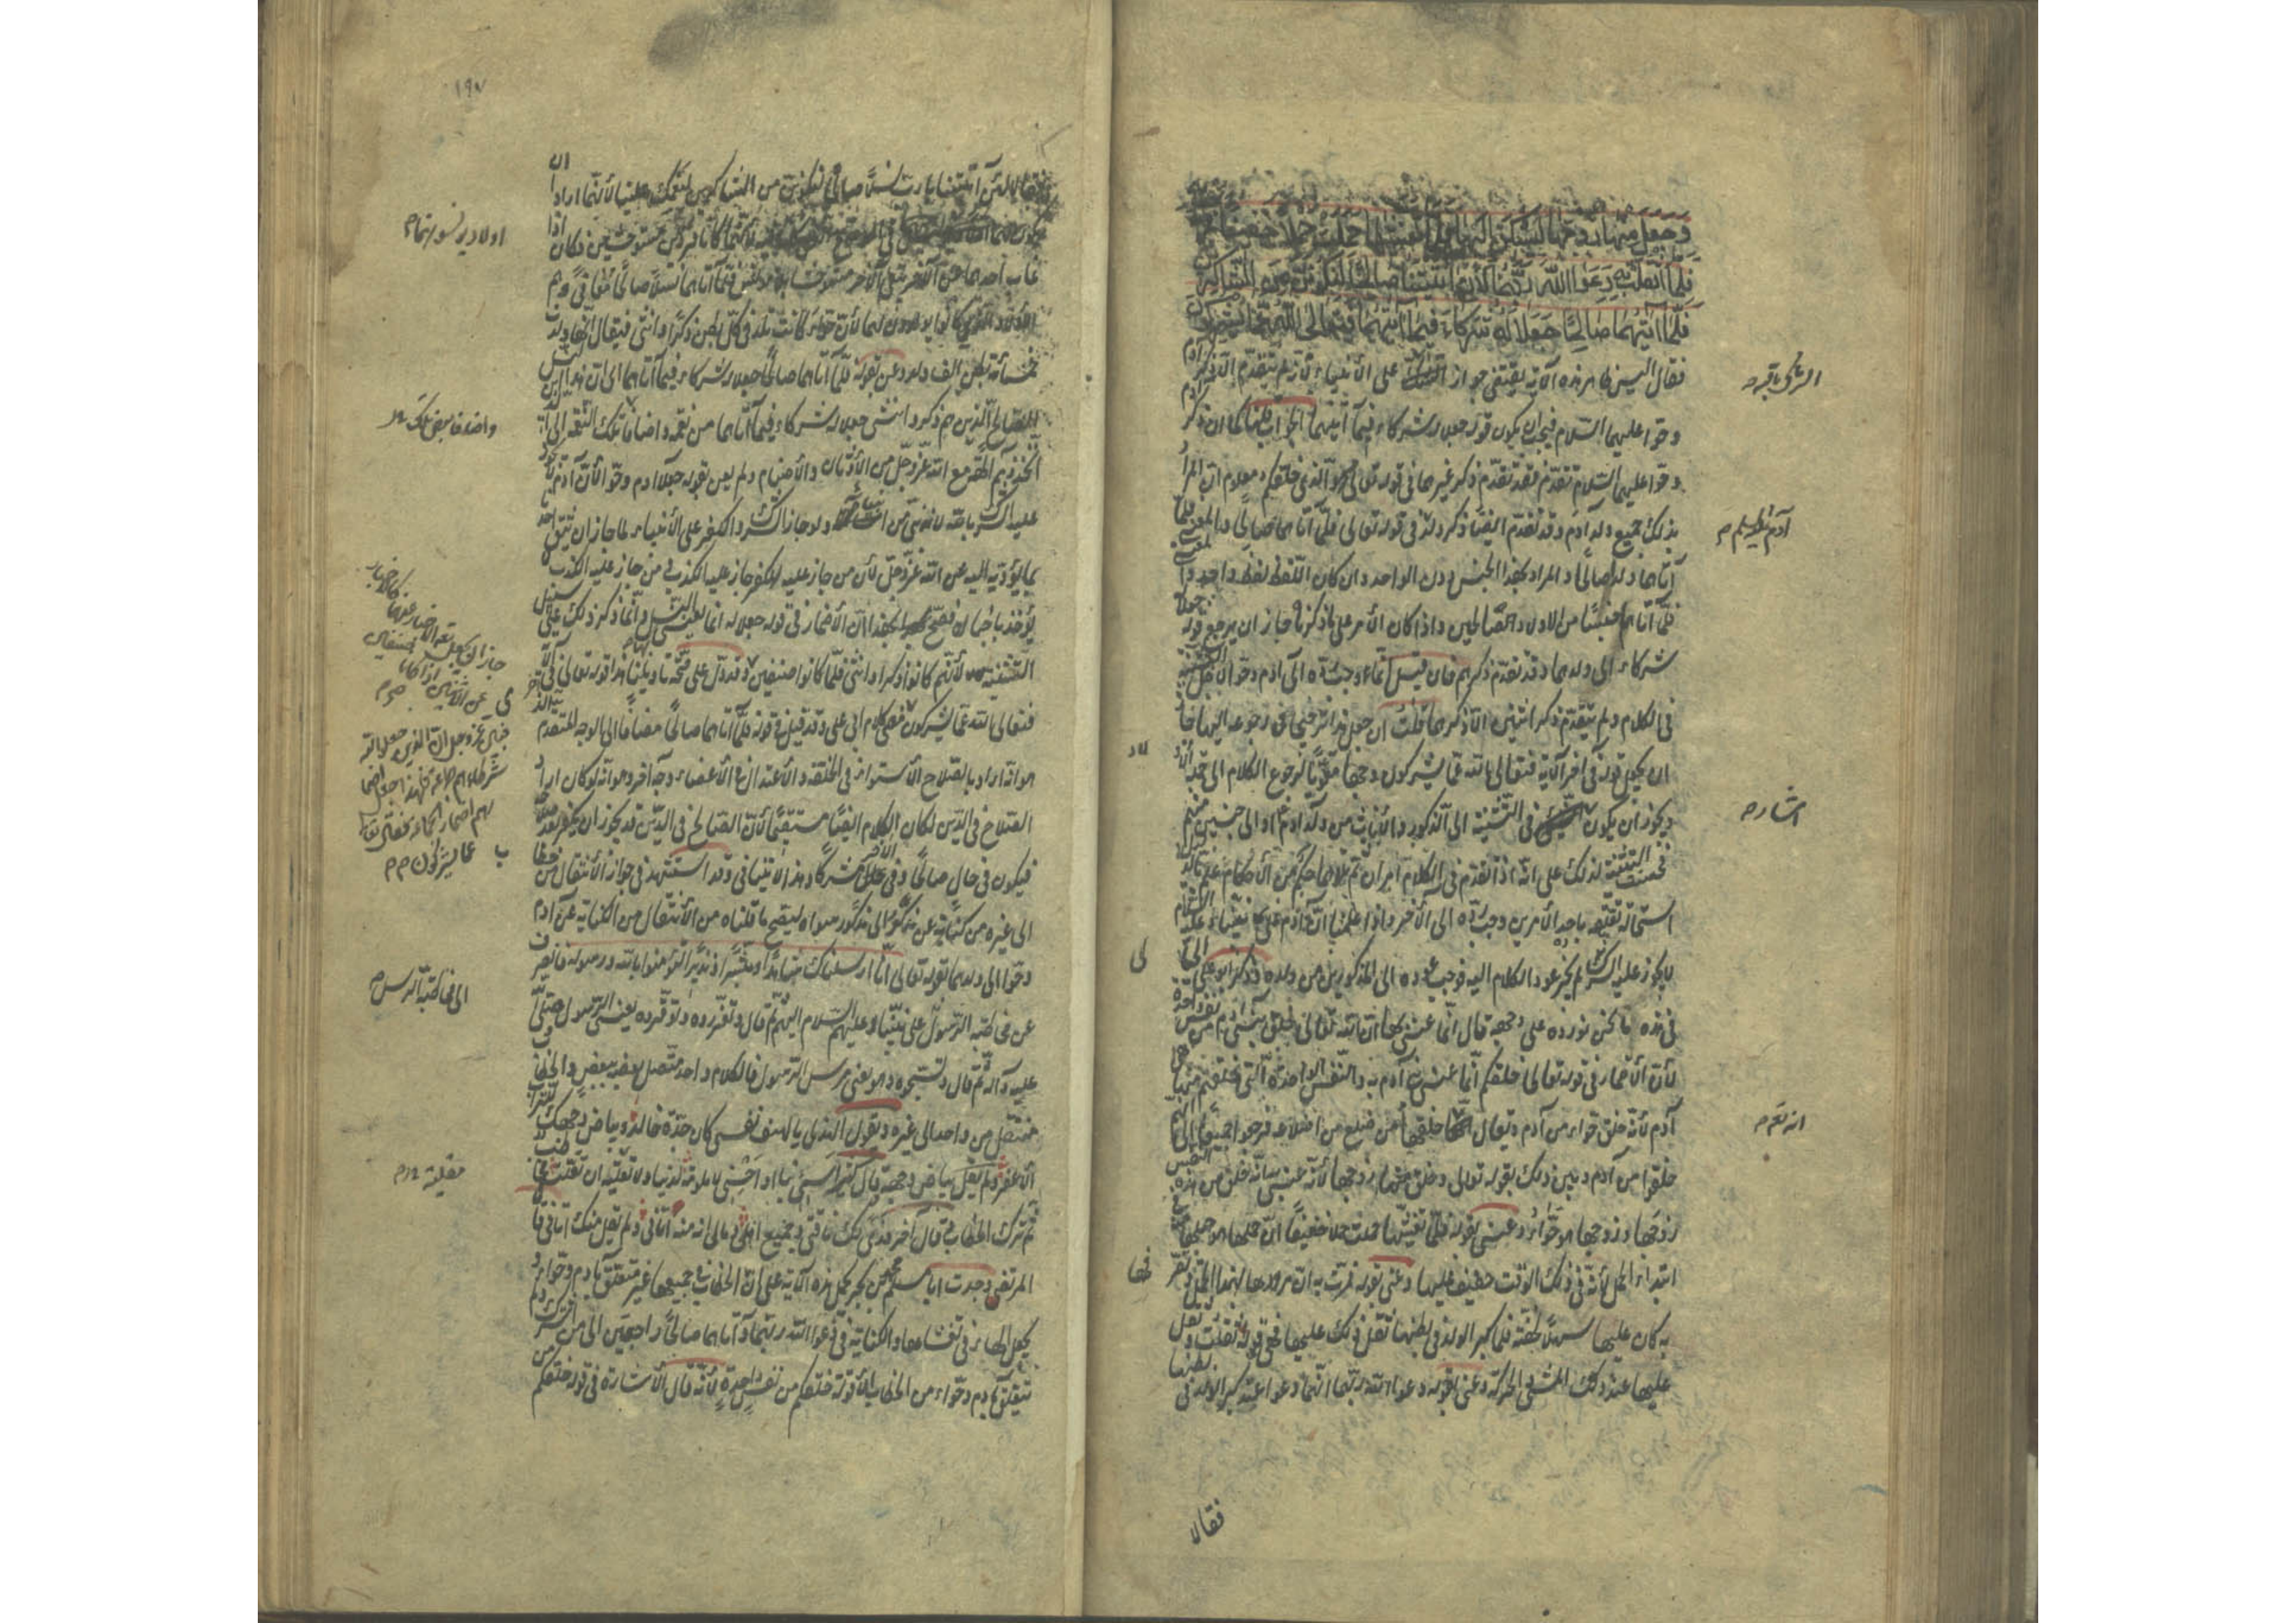 وجعل منها زوجها ليسكن اليها فلما تغشيها حملت حملا خفيفا فمرت به
فلما اثقلت دعوا الله ربهما لئن اتيتنا صالحا لنكونن من الشاكرين
فلما اتيهما صالحا جعلا له شركاء فيما اتيهما فتعالى الله عما يشركون
فقال اليس ظاهر هذه الآية يقتضى جواز الشرك على الأنبياء لأنه لم يتقدم إلا ذكر آدم
وحوا عليهما السلام فيجب ان يكون قوله جعلا له شركاء فيما آتيهما الجواب قلنا كما ان ذكر آدم
وحوا عليهما السلام تقدم فقد تقدم ذكر غيرهما فى قوله تعالى هو الذى خلقكم ومعلوم ان المراد
بذلك جميع ولد آدم وقد تقدم ايضا ذكر ولد فى قوله تعالى فلما آتاهما صالحا والمعنى فلما
آتاهما ولدا صالحا والمراد بهذا الجنس دون الواحد وان كان اللفظ لفظ واحد والمعنى
فلما آتاهما جنسا من الاولاد الصالحين واذا كان الأمر على ما ذكرنا جاز ان يرجع قوله جعلا له
شركاء الى ولدهما وقد تقدم ذكرهم فان قيل انما وجب رده الى آدم وحوا لأجل التثنية
فى الكلام ولم يتقدم ذكر اثنين الا ذكرهما قلت ان جعل هذا ترجيحا فى رجوعه اليهما جاز
ان يجعل قوله فى آخر الآية فتعالى الله عما يشركون وجها مقويا لرجوع الكلام الى جملة الأولاد
ويجوز ان يكون اشار فى التثنية الى الذكور والأناث من ولد آدم او الى جنسين منهم
فحسنت التثنية لذلك على انه اذا تقدم فى الكلام امران ثم تلاهما حكم من الأحكام وعلم بالدليل
استحالة تعلقه باحد الأمرين وجب رده الى الآخر واذا علمنا ان آدم على نبينا وعليه السلام
لا يجوز عليه الشرك لم يجز عود الكلام اليه فوجب عوده الى المذكورين من ولده وذكر ابو على الجبائى
فى هذه ما نحن نورده على وجهه قال انما عنى بهذا ان الله تعالى خلق بنى آدم من نفس واحدة
لأن الأضمار فى قوله تعالى خلقكم انما عنى بنى آدم به والنفس الواحدة التى خلقهم منها هى
آدم لأنه خلق حواء من آدم ويقال انه تعالى خلقها من ضلع من اضلاعه فرجعوا جميعا الى انهم
خلقوا من آدم وبين ذلك بقوله تعالى وخلق منها زوجها لأنه عنى به انه خلق من هذه النفس
زوجها وزوجها هو حواء وعنى بقوله فلما تغشيها حملت حملا خفيفا ان حملها هو حبلها منه فى
ابتداء الحمل لأنه فى ذلك الوقت خفيف عليها وعنى بقوله فمرت به ان مرورها بهذا الحمل وتصرفها
به كان عليها سهلا لخفته فلما كبر الولد فى بطنها ثقل ذلك عليها فهو قوله اثقلت وثقل
عليها عند ذلك المشى والحركة وعنى بقوله دعوا الله ربهما انهما دعوا عند كبر الولد فى بطنها
فقالا
الشرك باقيه
آدم عليه السلم م
اشار م
انه تعم م
١٩٧
فقالا لئن آتيتنا يا رب نسلا صالحا لنكونن من الشاكرين لنعمك علينا لأنهما ارادا ان
يكون لهما اولاد يونسونهما فى الموضع الذى كانا فيه لأنهما كانا فردين مستوحشين فكان اذا
غاب احدهما عن الآخر بقى الآخر مستوحشا بلا مونس فلما آتاهما نسلا صالحا معافى وهم
الأولاد الذين كانوا يولدون لهما لأن حواء كانت تلد فى كل بطن ذكرا وانثى فيقال انها ولدت
خمسمائة بطن الف ولد وعنى بقوله فلما آتاهما صالحا جعلا له شركاء فيما آتاهما اى ان هذا النسل
الصالح الذين هم ذكر وانثى جعلا له شركاء فيما آتاهما من نعمه واضافا تلك النعم الى الذين
اتخذوهم الهة مع الله عز وجل من الأوثان والأصنام ولم يعن بقوله جعلا آدم وحوا لأن آدم لا يجوز
عليه الشرك بالله لانه نبى من انبيائه ولو جاز الشرك والكفر على الأنبياء لما جاز ان يثق احدنا
بما يؤديه اليه عن الله عز وجل لأن من جاز عليه الكفر جاز عليه الكذب ومن جاز عليه الكذب لم
يؤخذ باخباره فصح بهذا ان الأضمار فى قوله جعلا له انما يعنى به النسل وانما ذكر ذلك على سبيل
التثنية لأنهم كانوا ذكرا وانثى فلما كانوا صنفين وقد دل على صحة تاويلنا هذا قوله تعالى فى آخر الآية
فتعالى الله عما يشركون فهى كلام ابى على وقد قيل فى قوله فلما آتاهما صالحا مضافا الى الوجه المتقدم الذى
هو انه اراد بالصلاح الأستواء فى الخلقة والأعتدال فى الأعضاء وجه آخر وهو انه لو كان اراد
الصلاح فى الدين لكان الكلام ايضا مستقيما لأن الصالح فى الدين قد يجوز ان يكفر بعد صلاحه
فيكون فى حال صالحا وفى الآخر مشركا وهذا لا يتنافى وقد استشهد فى جواز الأنتقال من خطاب
الى غيره من كناية عن مذكور الى مذكور سواه ليصح ما قلناه من الأنتقال من الكناية عن آدم
وحوا الى ولدهما بقوله تعالى انا ارسلناك شاهدا ومبشرا ونذيرا لتؤمنوا بالله ورسوله فانصرف
عن مخاطبة الرسول على نبينا وعليهم السلام اليهم ثم قال وتعزروه وتوقروه يعنى الرسول صلى
عليه وآله ثم قال وتسبحوه وهو يعنى مرسل الرسول فالكلام واحد متصل بعضه ببعض والخطاب
منتقل من واحد الى غيره ويقول الهذلى يا لهف نفسى كان جدة خالد وبياض وجهك للتراب
الأعفر ولم يقل بياض وجهه وقال كثير اسيئى بنا او احسنى لا ملومة لدينا ولا مقلية ان تقلت
ثم ترك الخطاب وقال آخر فدى لك ناقتى وجميع اهلى ومالى انه منه اتانى ولم يقل منك اتانى قال
المرتضى وجدت ابا مسلم محمد بن بحر يحمل هذه الآية على ان الخطاب فى جميعها غير متعلق بآدم وحواء و
يجعل الهاء فى تغشاها والكناية فى دعوا الله ربهما وآتاهما صالحا راجعين الى من اشرك ولم
يتعلق بآدم وحواء من الخطاب الا قوله خلقكم من نفس واحدة لأنه قال الأشارة فى قوله خلقكم من
اولاد يونسونهما م
الى مخاطبة الرسل م
مقلية م